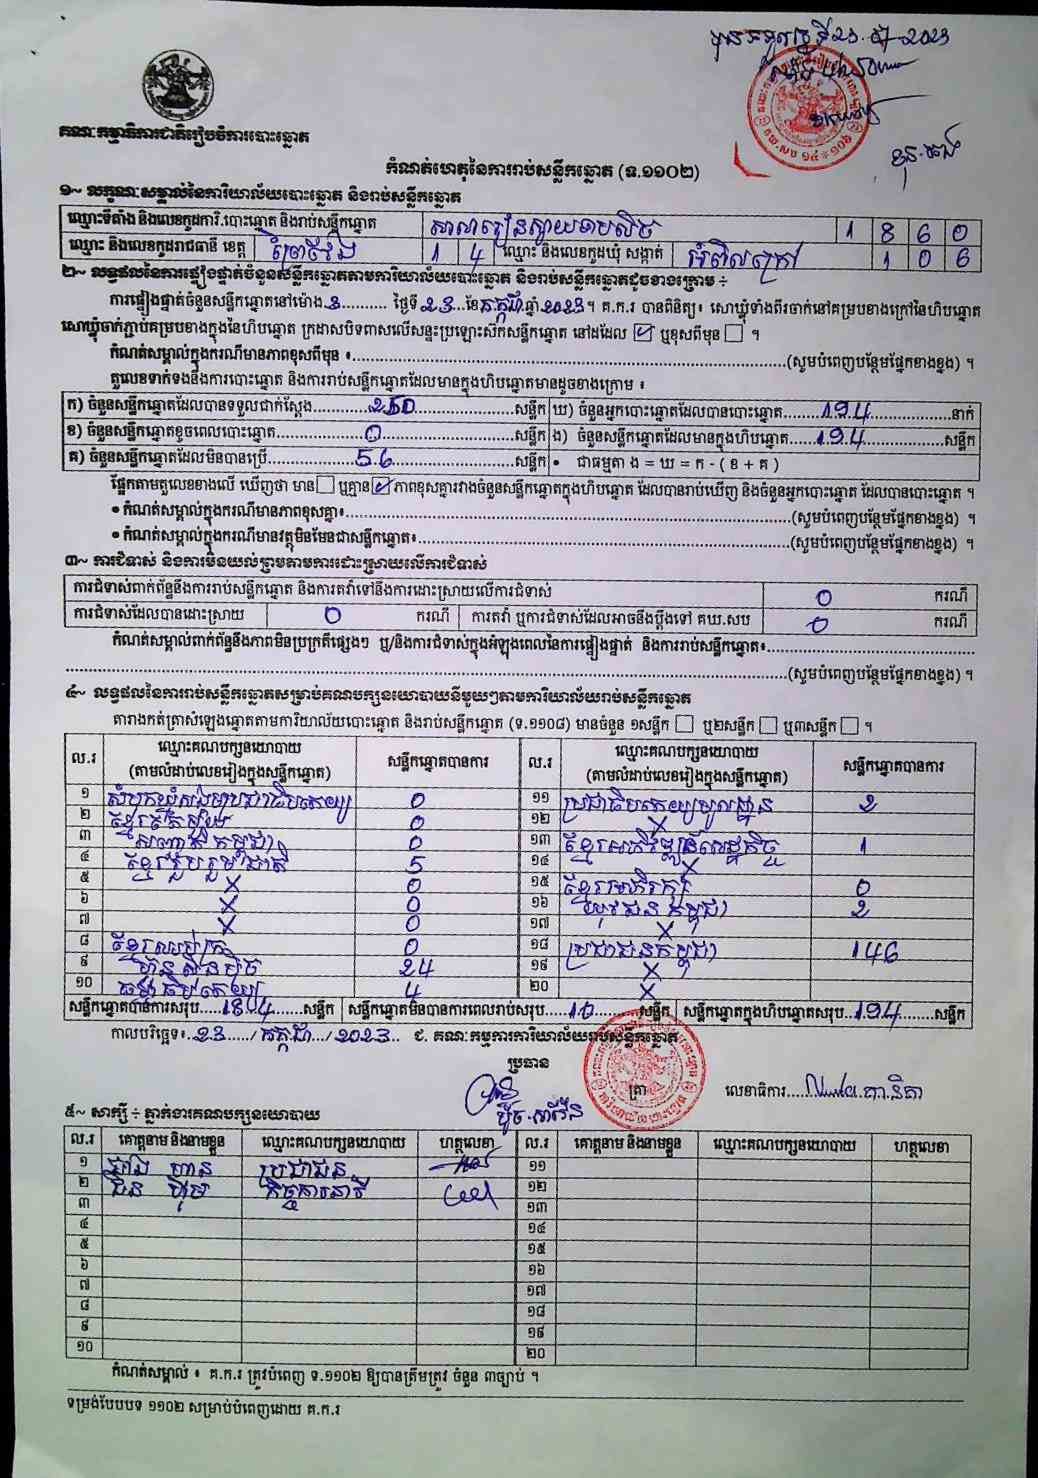 បានទទួលថ្ងៃទី 23. ៧-2023
គណៈកម្មាធិការជាតិរៀបចំការបោះឆ្នោត
កំណត់ហេតុនៃការរាប់សន្លឹកឆ្នោត (ទ.១១០២)
១~ លក្ខណៈសម្គាល់នៃការិយាល័យបោះឆ្នោត និងរាប់សន្លឹកឆ្នោត
ឈ្មោះទីតាំង និងលេខកូដការិ.បោះឆ្នោត និងរាប់សន្លឹកឆ្នោត សាលារៀនស្វាយ 1 8 6 0
ឈ្មោះ និងលេខកូដរាជធានី ខេត្ត ព្រៃវែង 1 4 ឈ្មោះ និងលេខកូដឃុំ សង្កាត់ អំពិលក្រៅ 1 0 6
២~ លទ្ធផលនៃការផ្ទៀងផ្ទាត់ចំនួនសន្លឹកឆ្នោតតាមការិយាល័យបោះឆ្នោត និងរាប់សន្លឹកឆ្នោតដូចខាងក្រោម ÷
ការផ្ទៀងផ្ទាត់ចំនួនសន្លឹកឆ្នោតនៅម៉ោង 3 ថ្ងៃទី 23 ខែ កក្កដា ឆ្នាំ 2023 ។ គ.ក.រ បានពិនិត្យ៖ សោឃ្មុំទាំងពីរចាក់នៅគម្របខាងក្រៅនៃហិបឆ្នោត
សោឃ្មុំចាក់ភ្ជាប់គម្របខាងក្នុងនៃហិបឆ្នោត ក្រដាសបិទពាសលើសន្ទះប្រឡោះស៊កសន្លឹកឆ្នោត នៅដដែល ☑ ឬខុសពីមុន ☐ ។
កំណត់សម្គាល់ក្នុងករណីមានភាពខុសពីមុន ៖ (សូមបំពេញបន្ថែមផ្នែកខាងខ្នង) ។
តួលេខទាក់ទងនឹងការបោះឆ្នោត និងការរាប់សន្លឹកឆ្នោតដែលមានក្នុងហិបឆ្នោតមានដូចខាងក្រោម ៖
ក) ចំនួនសន្លឹកឆ្នោតដែលបានទទួលជាក់ស្តែង 250 សន្លឹក ឃ) ចំនួនអ្នកបោះឆ្នោតដែលបានបោះឆ្នោត 194 នាក់
ខ) ចំនួនសន្លឹកឆ្នោតខូចពេលបោះឆ្នោត 0 សន្លឹក ង) ចំនួនសន្លឹកឆ្នោតដែលមានក្នុងហិបឆ្នោត 194 សន្លឹក
គ) ចំនួនសន្លឹកឆ្នោតដែលមិនបានប្រើ 56 សន្លឹក • ជាធម្មតា ង = ឃ = ក - ( ខ + គ )
ផ្អែកតាមតួលេខខាងលើ ឃើញថា មាន ☐ ឬគ្មាន ☑ ភាពខុសគ្នារវាងចំនួនសន្លឹកឆ្នោតក្នុងហិបឆ្នោត ដែលបានរាប់ឃើញ និងចំនួនអ្នកបោះឆ្នោត ដែលបានបោះឆ្នោត ។
• កំណត់សម្គាល់ក្នុងករណីមានភាពខុសគ្នា៖ (សូមបំពេញបន្ថែមផ្នែកខាងខ្នង) ។
• កំណត់សម្គាល់ក្នុងករណីមានវត្ថុមិនមែនជាសន្លឹកឆ្នោត៖ (សូមបំពេញបន្ថែមផ្នែកខាងខ្នង) ។
៣~ ការជំទាស់ និងការមិនយល់ព្រមតាមការដោះស្រាយលើការជំទាស់
ការជំទាស់ពាក់ព័ន្ធនឹងការរាប់សន្លឹកឆ្នោត និងការតវ៉ាទៅនឹងការដោះស្រាយលើការជំទាស់ 0 ករណី
ការជំទាស់ដែលបានដោះស្រាយ 0 ករណី ការតវ៉ា ឬការជំទាស់ដែលអាចនឹងប្តឹងទៅ គឃ.សប 0 ករណី
កំណត់សម្គាល់ពាក់ព័ន្ធនឹងភាពមិនប្រក្រតីផ្សេងៗ ឬ/និងការជំទាស់ក្នុងអំឡុងពេលនៃការផ្ទៀងផ្ទាត់ និងការរាប់សន្លឹកឆ្នោត៖
(សូមបំពេញបន្ថែមផ្នែកខាងខ្នង) ។
៤~ លទ្ធផលនៃការរាប់សន្លឹកឆ្នោតសម្រាប់គណបក្សនយោបាយនីមួយៗតាមការិយាល័យរាប់សន្លឹកឆ្នោត
តារាងកត់ត្រាសំឡេងឆ្នោតតាមការិយាល័យបោះឆ្នោត និងរាប់សន្លឹកឆ្នោត (ទ.១១០៨) មានចំនួន ១សន្លឹក ☐ ឬ២សន្លឹក ☐ ឬ៣សន្លឹក ☐ ។
ល.រ ឈ្មោះគណបក្សនយោបាយ (តាមលំដាប់លេខរៀងក្នុងសន្លឹកឆ្នោត) សន្លឹកឆ្នោតបានការ ល.រ ឈ្មោះគណបក្សនយោបាយ (តាមលំដាប់លេខរៀងក្នុងសន្លឹកឆ្នោត) សន្លឹកឆ្នោតបានការ
១ សំបុកឃ្មុំសង្គមប្រជាធិបតេយ្យ 0 ១១ ប្រជាធិបតេយ្យមូលដ្ឋាន 2
២ ខ្មែរតែមួយ 0 ១២ X
៣ សញ្ជាតិកម្ពុជា 0 ១៣ ខ្មែរអភិវឌ្ឍន៍សេដ្ឋកិច្ច 1
៤ ខ្មែររួបរួមជាតិ 5 ១៤ X
៥ X 0 ១៥ ខ្មែរអភិរក្ស 0
៦ X 0 ១៦ យុវជនកម្ពុជា 2
៧ X 0 ១៧ X
៨ ខ្មែរឈប់ក្រ 0 ១៨ ប្រជាជនកម្ពុជា 146
៩ ហ៊្វុនស៊ិនប៉ិច 24 ១៩ X
១០ ធម្មាធិបតេយ្យ 4 ២០ X
សន្លឹកឆ្នោតបានការសរុប 184 សន្លឹក សន្លឹកឆ្នោតមិនបានការពេលរាប់សរុប 10 សន្លឹក សន្លឹកឆ្នោតក្នុងហិបឆ្នោតសរុប 194 សន្លឹក
កាលបរិច្ឆេទ៖ 23 / កក្កដា / 2023 ជ. គណៈកម្មការការិយាល័យរាប់សន្លឹកឆ្នោត
ប្រធាន
ត្រា លេខាធិការ
៥~ សាក្សី ÷ ភ្នាក់ងារគណបក្សនយោបាយ
ល.រ គោត្តនាម និងនាមខ្លួន ឈ្មោះគណបក្សនយោបាយ ហត្ថលេខា ល.រ គោត្តនាម និងនាមខ្លួន ឈ្មោះគណបក្សនយោបាយ ហត្ថលេខា
១ ប្រជាជន ១១
២ ១២
៣ ១៣
៤ ១៤
៥ ១៥
៦ ១៦
៧ ១៧
៨ ១៨
៩ ១៩
១០ ២០
កំណត់សម្គាល់ ៖ គ.ក.រ ត្រូវបំពេញ ទ.១១០២ ឱ្យបានត្រឹមត្រូវ ចំនួន ៣ច្បាប់ ។
ទម្រង់បែបបទ ១១០២ សម្រាប់បំពេញដោយ គ.ក.រ